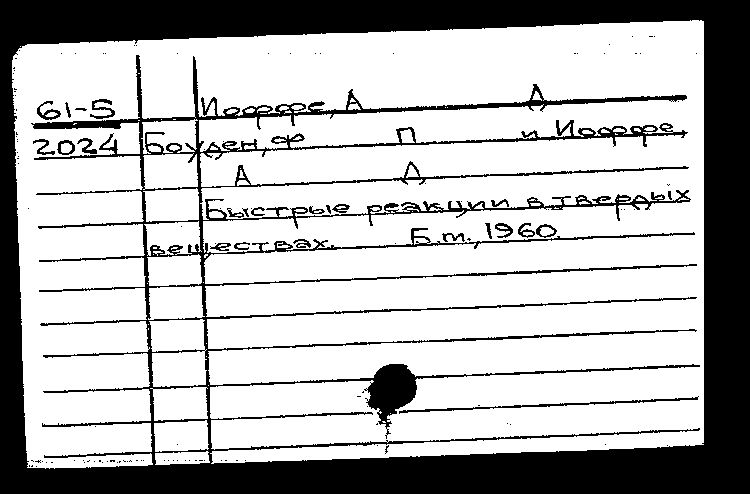 61-5 Иоффе, А Д
2024 Боуден, Ф П и Иоффе,
А Д
Быстрые реакции в твердых
веществах. Б.т., 1960